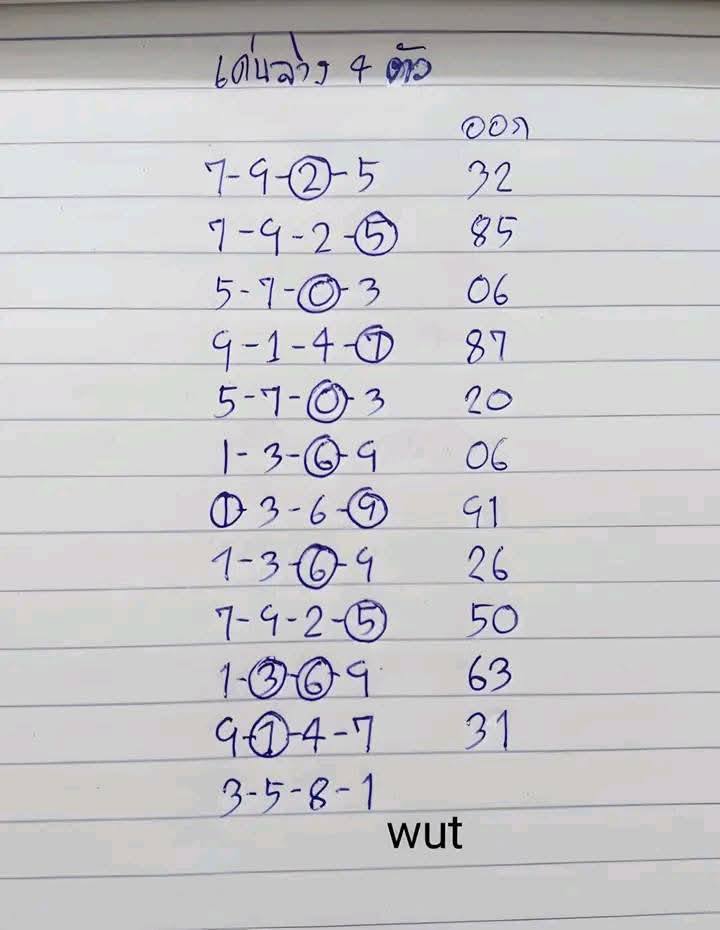 เด่นล่าง 4 ตัว
ออก
7-9-2-5 32
7-9-2-5 85
5-7-0-3 06
9-1-4-7 87
5-7-0-3 20
1-3-6-9 06
1-3-6-9 91
1-3-6-9 26
7-9-2-5 50
1-3-6-9 63
9-1-4-7 31
3-5-8-1
wut